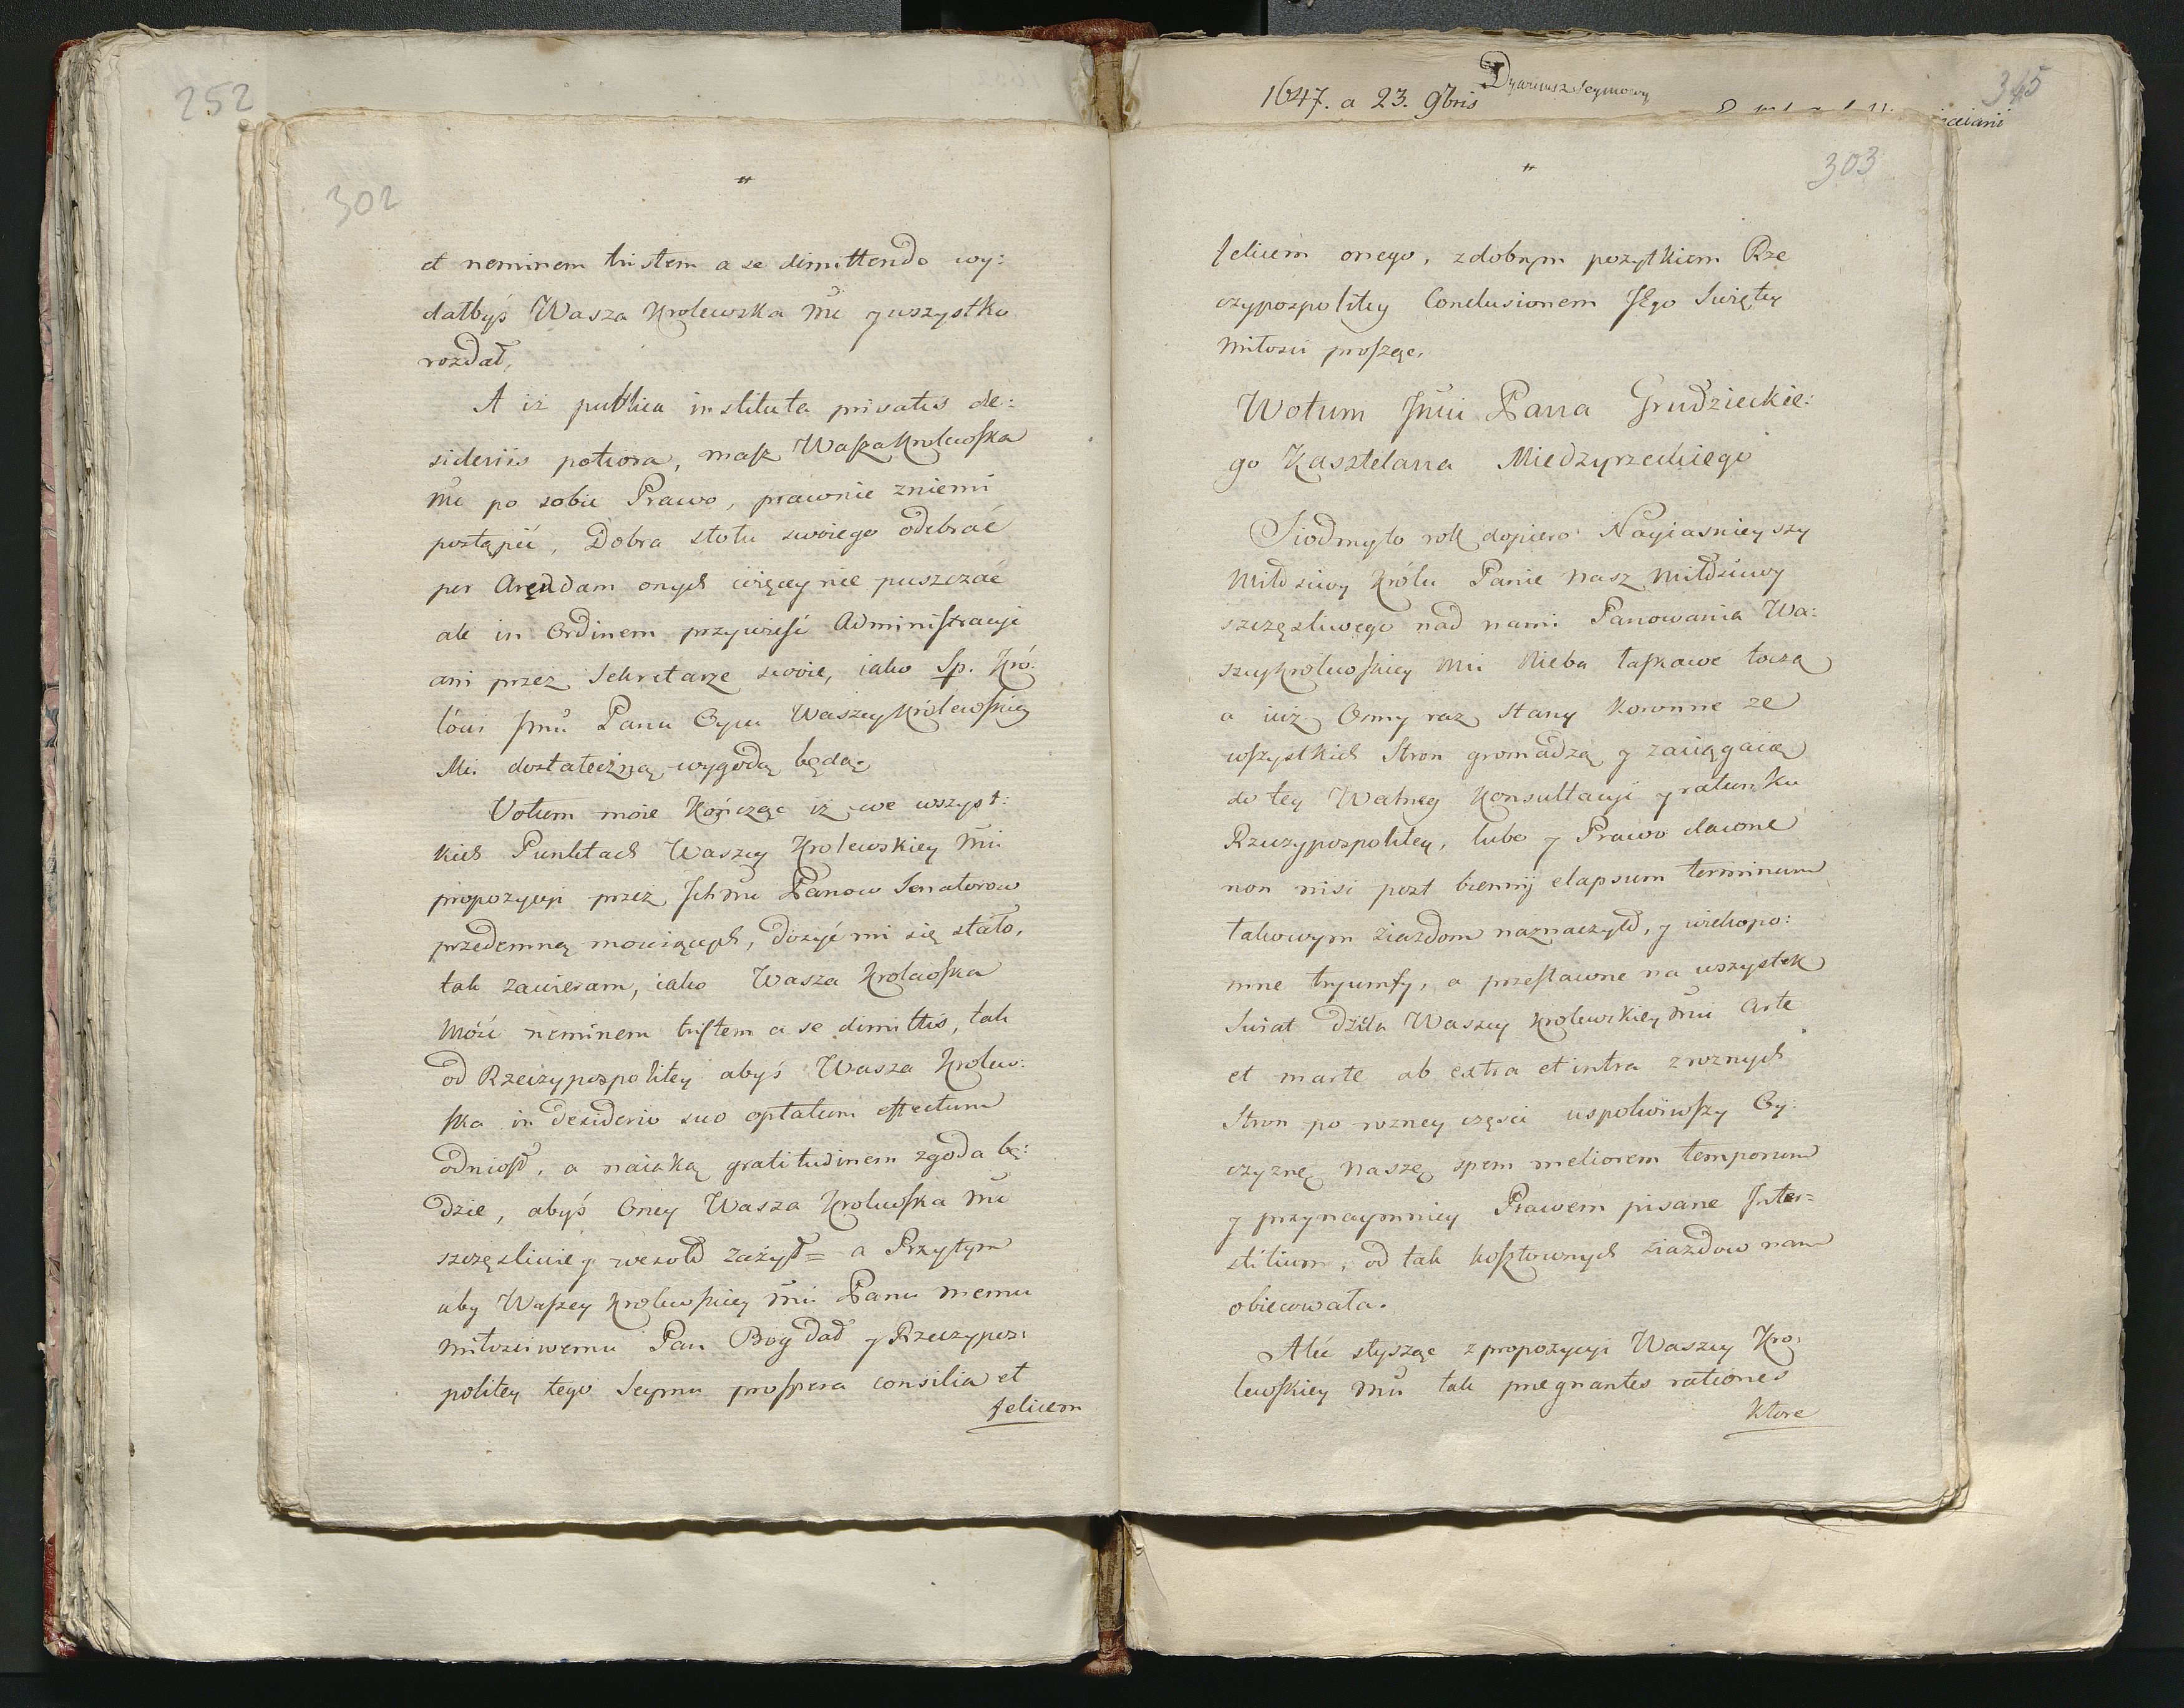 252
302
"
et neminem tristem a se dimittendo wy:
dałbyś Wasza Krolewska Mć y wszystko
rozdał,
A iż publica instituta privatis de:
sideriis potiora, masz Wasza Krolewska
Mć po sobie Prawo, prawnie zniemi
postąpić, Dobra stołu swoiego odebrać
per Arendam onych więcey nie puszczać
ale in Ordinem przywieść Administracyi
ani przez Sekretarze swoie, iako Sp. Kró:
lowi Jmći Panu Oycu Waszey Królewskiey
Mci dostateczną wygodą będą.
Votum moie kończąc iż we wszyst:
kich Punktach Waszey Krolewskiey Mci
propozycyi przez Jchmć Panow Senatorow
przedemną mowiących, dosyć mi się stało,
tak zawieram, iako Wasza Krolewska
Mość neminem tristem a se dimittis, tak
od Rzeczypospolitey abyś Wasza Krolew:
ska in desiderio suo optatum effectum
odniosł, a naiaką gratitudinem zgoda bę:
dzie, abyś Oney Wasza Krolewska Mć
szczęsliwie y wesoło zażył = a Przytym
aby Waszey Krolewskiey Mci Panu memu
miłosciwemu Pan Bog dał y Rzeczypos:
politey tego Seymu prospera consilia et
felicem
1647. a 23. 9bris
Dyaryusz Seymowy
345
303
"
felicem onego, zdobrym pożytkiem Rze
czypospolitey Conclusionem JEgo Swiętey
Miłosci proszęc.
Wotum Jmći Pana Grudzieckie:
go Kasztelana Miedzyrzeckiego
Siodmyto rok dopiero Nayiasnieyszy
Miłosciwy Królu Panie nasz Miłosciwy
szczęsliwego nad nami Panowania Wa:
szey Krolewskiey Mci Nieba łaskawe toczą
a iuż Osmy raz Stany Koronne ze
wszystkich Stron gromadzą y zaciągaią
do tey Walney Konsultacyi y ratunku
Rzeczypospolitey, lubo y Prawo dawne
non nisi post biennij elapsum terminum
takowym ziazdom naznaczyło, y wiekopo:
mne tryumfy, a przesławne na wszystek
Swiat dzieła Waszey Krolewskiey Mci Arte
et marte ab extra et intra z roznych
Stron po rozney częsci uspokoiwszy Oy:
czyznę naszę spem meliorem temporum
y przynaymniey Prawem pisane Inter=
stitium, od tak kosztownych ziazdow nam
obiecowała.
Ale słysząc z propozycyi Waszey Kro:
lewskiey Mci tak pregnantes rationes
ktore